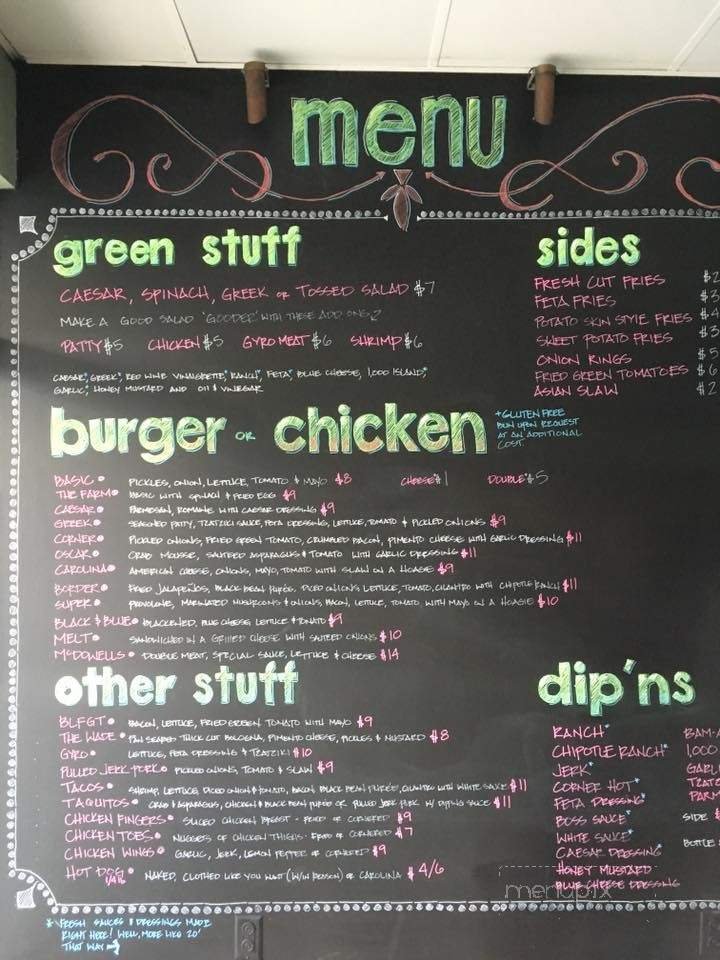 menu
green stuff
CAESAR, SPINACH, GREEK or TOSSED SALAD $7
MAKE A GOOD SALAD 'GOODER' WITH THESE ADD ONS?
PATTY $5 CHICKEN $5 GYRO MEAT $6 SHRIMP $6
CAESAR*, GREEK*, RED WINE VINAIGRETTE*, RANCH*, FETA*, BLUE CHEESE, 1,000 ISLAND*,
GARLIC*, HONEY MUSTARD AND OIL & VINEGAR
sides
FRESH CUT FRIES $2
FETA FRIES $3
POTATO SKIN STYLE FRIES $4
SWEET POTATO FRIES $3
ONION RINGS $5
FRIED GREEN TOMATOES $6
ASIAN SLAW $2
burger or chicken
+GLUTEN FREE
BUN UPON REQUEST
AT AN ADDITIONAL
COST.
BASIC • PICKLES, ONION, LETTUCE, TOMATO & MAYO $8 CHEESE $1 DOUBLE $5
THE FARM • BASIC WITH SPINACH & FRIED EGG $9
CAESAR • PARMESAN, ROMAINE WITH CAESAR DRESSING $9
GREEK • SEASONED PATTY, TZATZIKI SAUCE, FETA DRESSING, LETTUCE, TOMATO & PICKLED ONIONS $9
CORNER • PICKLED ONIONS, FRIED GREEN TOMATO, CRUMBLED BACON, PIMENTO CHEESE WITH GARLIC DRESSING $11
OSCAR • CRAB MOUSSE, SAUTEED ASPARAGUS & TOMATO WITH GARLIC DRESSING $11
CAROLINA • AMERICAN CHEESE, ONIONS, MAYO, TOMATO WITH SLAW ON A HOAGIE $9
BORDER • FRIED JALAPEÑOS, BLACK BEAN PURÉE, DICED ONIONS, LETTUCE, TOMATO, CILANTRO WITH CHIPOTLE RANCH $11
SUPER • PROVOLONE, MARINATED MUSHROOMS & ONIONS, BACON, LETTUCE, TOMATO WITH MAYO ON A HOAGIE $10
BLACK & BLUE • BLACKENED, BLUE CHEESE, LETTUCE & TOMATO $9
MELT • SANDWICHED IN A GRILLED CHEESE WITH SAUTEED ONIONS $10
McDOWELLS • DOUBLE MEAT, SPECIAL SAUCE, LETTUCE & CHEESE $14
other stuff
BLFGT • BACON, LETTUCE, FRIED GREEN TOMATO WITH MAYO $9
THE WADE • PAN SEARED THICK CUT BOLOGNA, PIMENTO CHEESE, PICKLES & MUSTARD $8
GYRO • LETTUCE, FETA DRESSING & TZATZIKI $10
PULLED JERK PORK • PICKLED ONIONS, TOMATO & SLAW $9
TACOS • SHRIMP, LETTUCE, DICED ONION & TOMATO, BACON, BLACK BEAN PURÉE, CILANTRO WITH WHITE SAUCE $11
TAQUITOS • CRAB & ASPARAGUS, CHICKEN & BLACK BEAN PURÉE OR PULLED JERK PORK W/ DIPPING SAUCE $11
CHICKEN FINGERS • SLICED CHICKEN BREAST - FRIED OR CORNERED $9
CHICKEN TOES • NUGGETS OF CHICKEN THIGHS - FRIED OR CORNERED $7
CHICKEN WINGS • GARLIC, JERK, LEMON PEPPER OR CORNERED $9
HOT DOG • NAKED, CLOTHED LIKE YOU WANT (W/IN REASON) OR CAROLINA $4/6
dip'ns
RANCH*
CHIPOTLE RANCH*
JERK*
CORNER HOT*
FETA DRESSING*
BOSS SAUCE*
WHITE SAUCE*
CAESAR DRESSING*
HONEY MUSTARD
BLUE CHEESE DRESSING
BAM-
1,000
GARL
TZATZ
PARM
SIDE $
BOTTLE
menupix
* FRESH SAUCES & DRESSINGS MADE
RIGHT HERE! WELL, MORE LIKE 20'
THAT WAY →